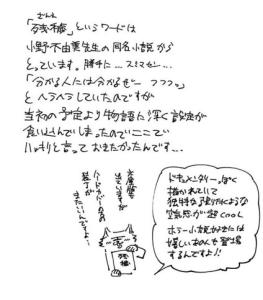 ざんえ
「残穢」というワードは
小野不由美先生の同名小説から
とっています。勝手に…スミマセン…
「分かる人には分かるぜー フフフ。」
とヘラヘラしていたのですが
当初の予定より物語に深く設定が
食い込んでしまったのでここで
ハッキリと言っておきたかったんです…
文庫版も
出ていますが
ハードカバーの方の
装丁が
またいいんですよ…
残穢
ドキュメンタリーっぽく
描かれていて
独特な
感が超cool
ホラー小説好きには
嬉しいあの人も登場
するんですよ!!